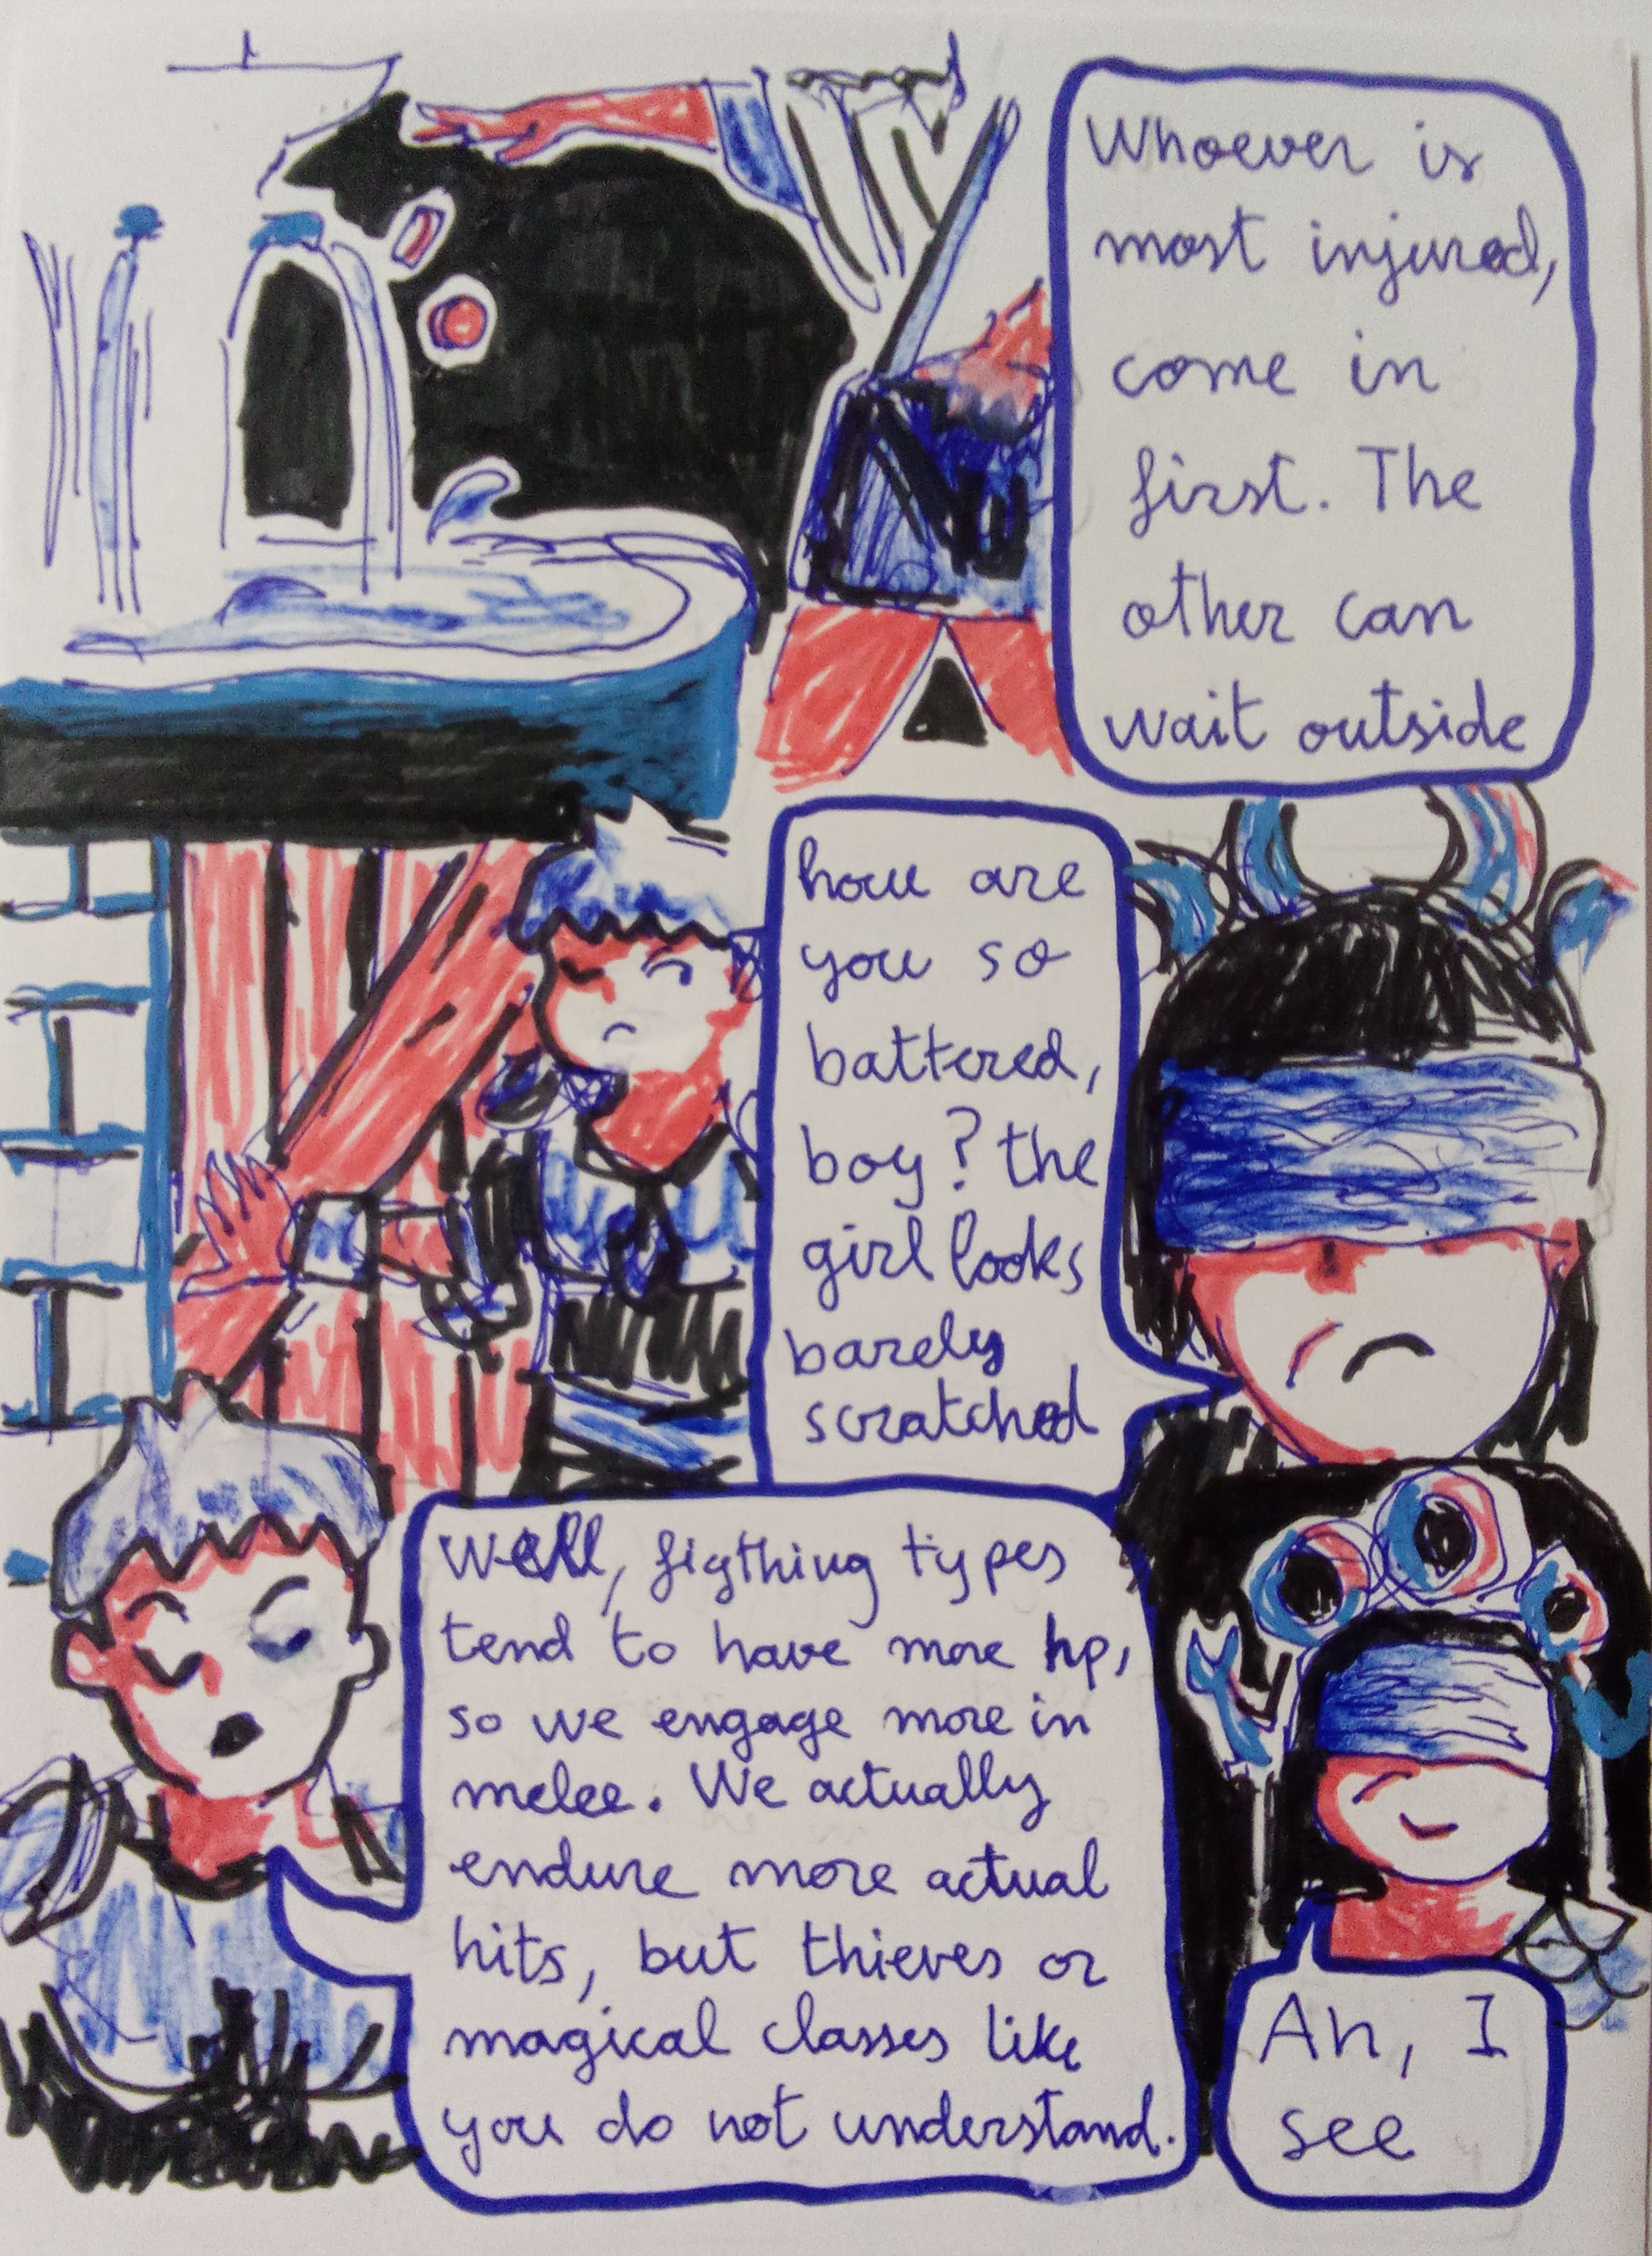 Whoever is
most injured,
come in
first. The
other can
wait outside
how are
you so
battered,
boy? the
girl looks
barely
scratched
Well, figthing types
tend to have more hp,
so we engage more in
melee. We actually
endure more actual
hits, but thieves or
magical classes like
you do not understand.
Ah, I
see